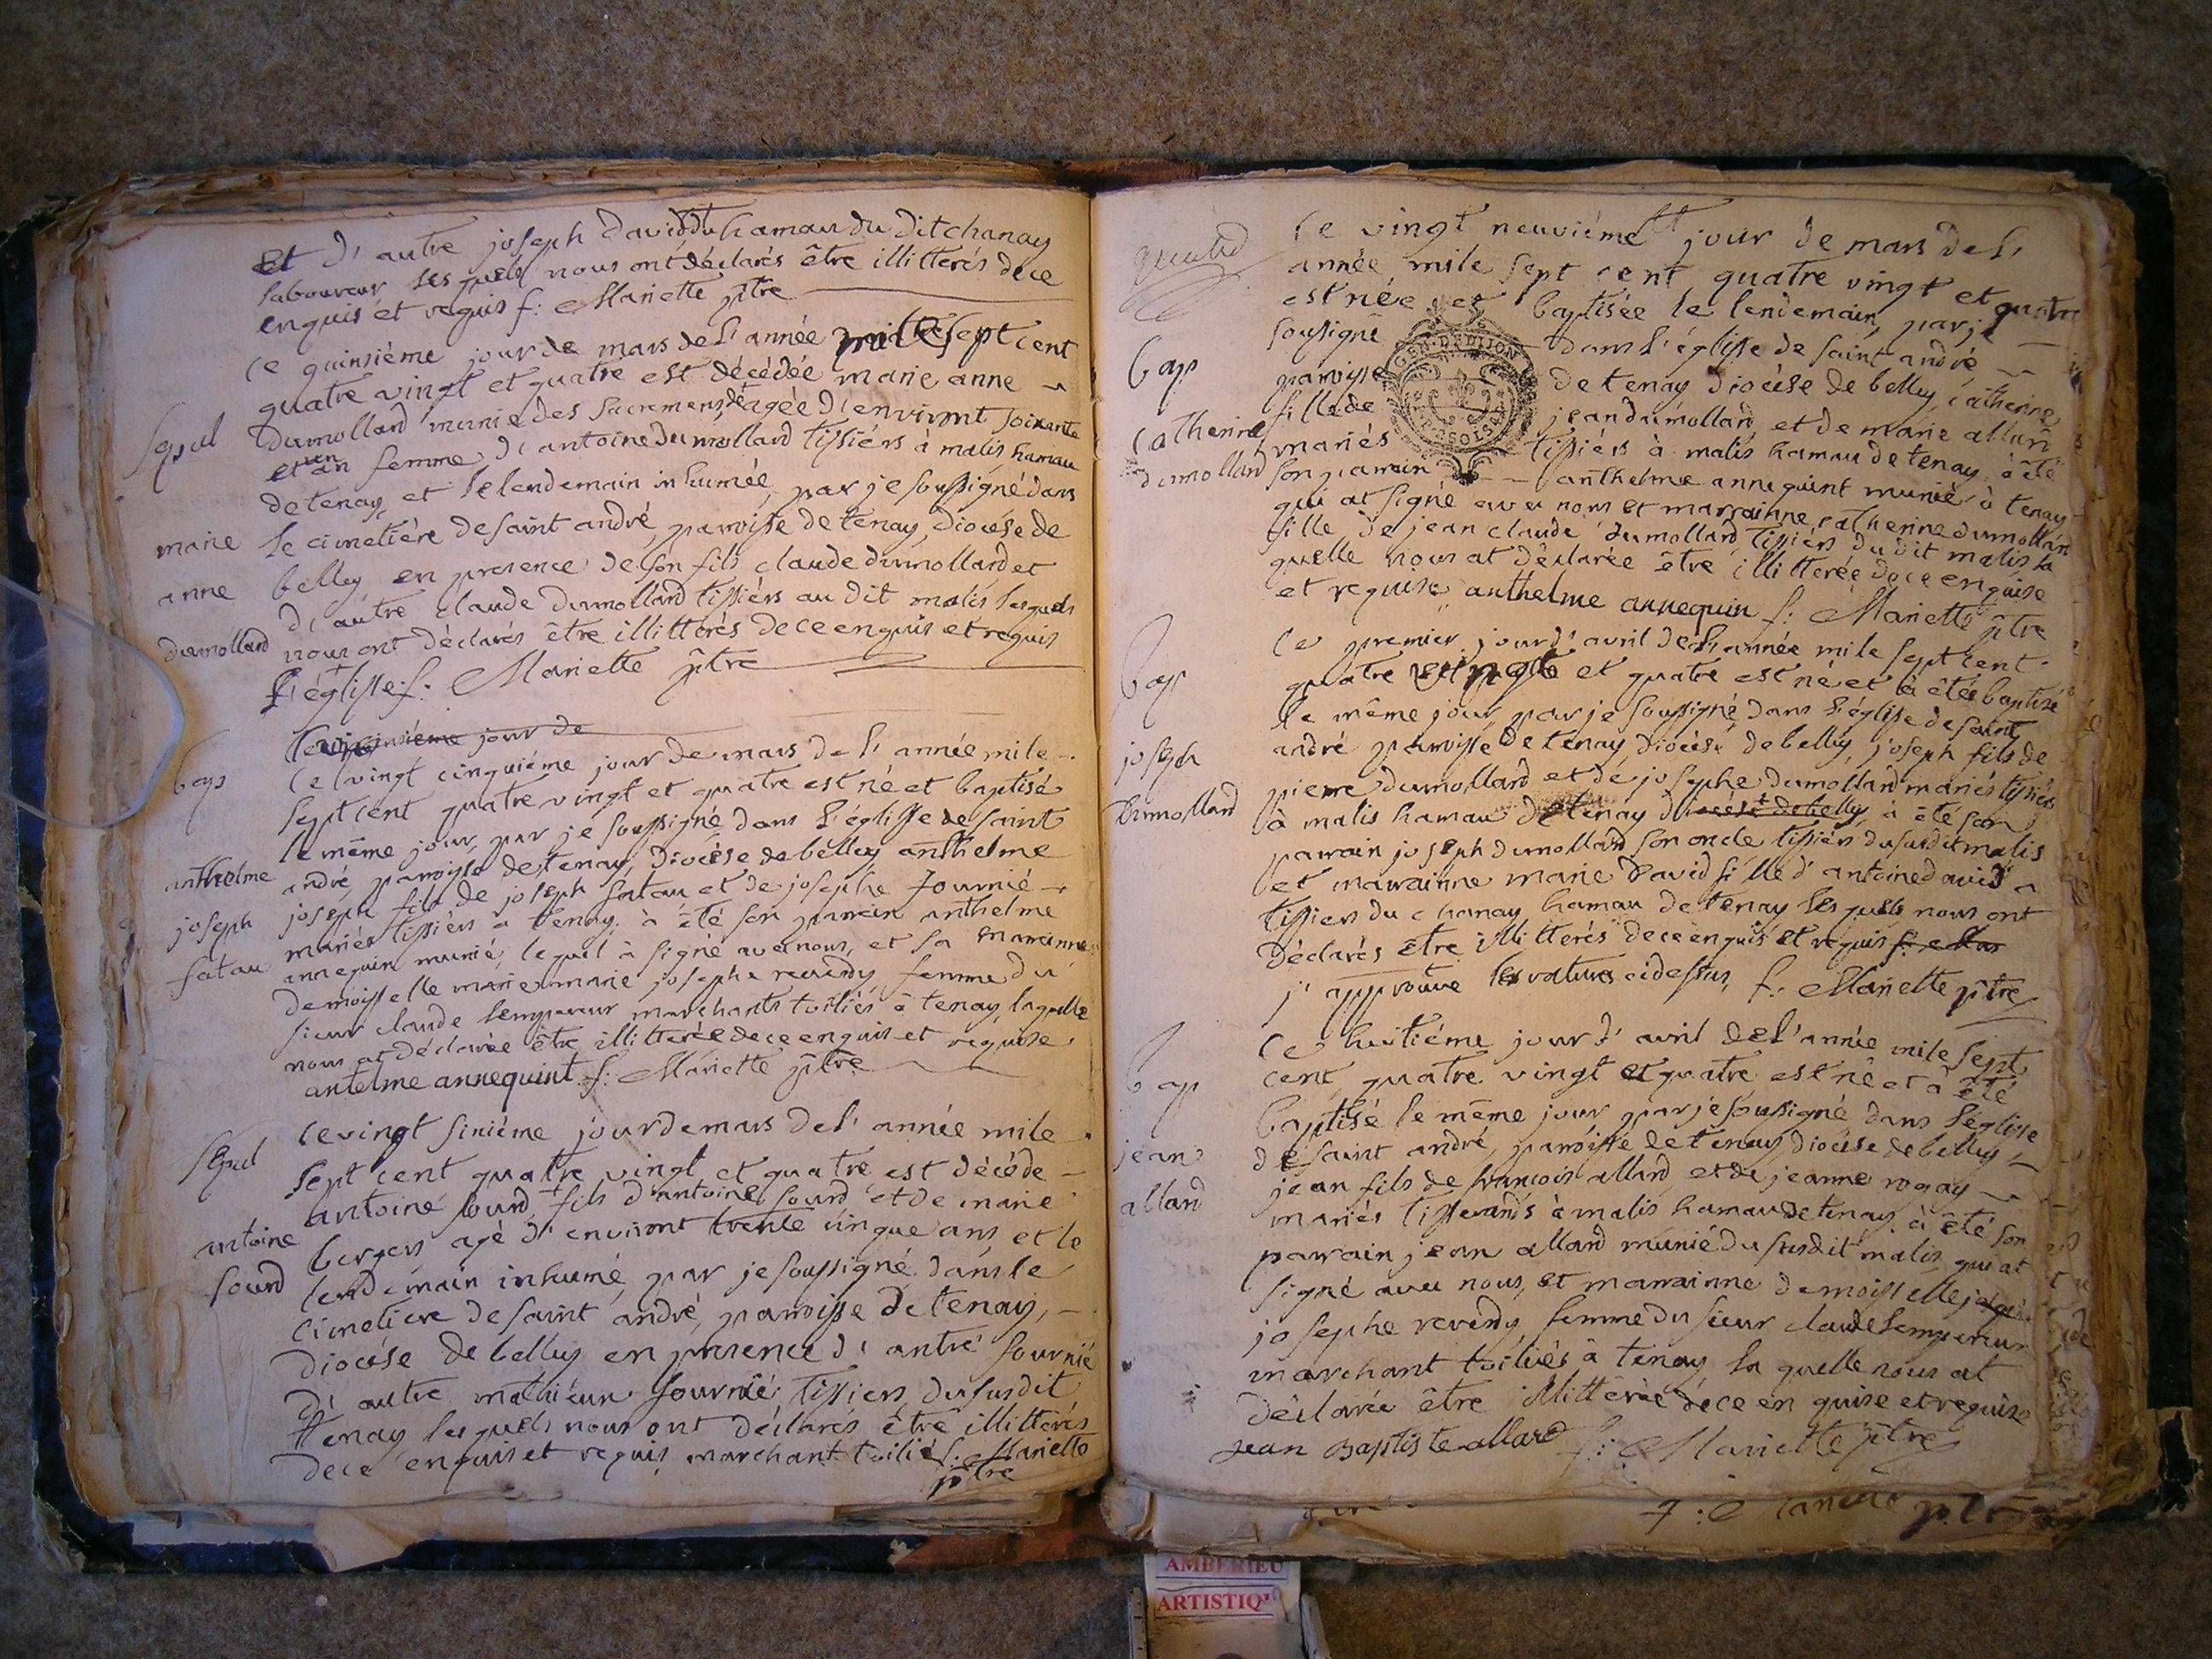 Et d'autre joseph david du hamau du dit chanay
laboureur lesquels nous ont déclarés être illitterés de ce
enquis et requis f: Mariette ptre
Le quinsiéme jour de mars de l'année mile sept cent
quatre vingt et quatre est décédée marie anne
Sepul dumollard munie des sacremens, et agée d'environt soixante
et un an femme d'antoine dumollard tissiérs à malis hamau
de tenay, et le lendemain inhumée, par je soussigné dans
marie le cimetière de saint andré, paroisse de tenay, diocése de
anne belley, en presence de son fils claude dumollard et
d'autre claude dumollard tissiérs au dit malis lesquels
dumollard nous ont déclarés être illitterés de ce enquis et requis
l'église f: Mariette ptre
jour de
bap Le vingt cinquiéme jour de mars de l'année mile
sept cent quatre vingt et quatre est né et baptisé
le même jour, par je soussigné dans l'églisse de saint
anthelme andré, paroisse de tenay, diocése de belley anthelme
joseph joseph fils de joseph fatau et de josephe fournié
mariés tissiérs à tenay. à été son parrain anthelme
fatau annequin munié, lequel à signé avec nous, et sa marainne
demoisselle marie marie josephe reverdy femme du
sieur claude lempereur marchants toiliés à tenay, laquelle
nous at déclarée être illitterée de ce enquise et requise.
antelme annequint f: Mariette ptre
Sepul Le vingt sixiéme jour de mars de l'année mile
sept cent quatre vingt et quatre est décéde
antoine sourd fils d'antoine sourd et de marie
antoine bergers agé d'environt trente cinque ans et le
sourd lendemain inhumé, par je soussigné dans le
cimetiere de saint andré, paroisse de tenay,
diocése de belley en presence d'antré fournié
d'autre mathieur fournié tissiers du susdit
tenay lesquels nous ont déclarés être illitterés
de ce enquis et requis, marchant toilié f: Mariette
ptre
Le vingt neuviéme jour de mars de l'
année mile sept cent quatre vingt et quatre
est née et baptisée le lendemain, par je
soussigné dans l'églisse de saint andré
GEN. DE DIJON
bap paroisse de tenay diocése de belley, catherine
Catherine fille de jean dumollard et de marie allard
mariés tissiérs à malis hamau de tenay à été
dumollard son parrain anthelme annequint munié à tenay
qui at signé avec nous et marrainne, catherine dumollard
fille de jean claude dumollard tissiérs du dit malis la
quelle nous at déclarée être illitterée de ce enquise
et requise anthelme annequin f: Mariette ptre
bap Le premier jour d'avril de l'année mile sept cent
quatre vingt et quatre est né et à été baptisé
le même jour, par je soussigné, dans l'églisse de saint
joseph andré paroisse de tenay, diocésé de belley, joseph fils de
pierre dumollard et de josephe dumollard mariés tissiérs
dumollard à malis hamau de tenay diocése de belley, à été son
parrain joseph dumollard son oncle tissiérs du susdit malis
et marrainne marie david fille d'antoine david
tissiers du chanay hamau de tenay lesquels nous ont
déclarés être illitterés de ce enquis et requis f: Mar
j'approuve les ratures cidessus, f: Mariette ptre
Le huitiéme jour d'avril de l'année mile sept
bap cent quatre vingt et quatre est né et à été
baptisé le même jour par je soussigné dans l'églisse
jean de saint andré, paroisse de tenay diocése de belley
allard jean fils de francois allard et de jeanne rogay
mariés tisserands à malis hamau de tenay. à été son
parrain jean allard munié du susdit malis, qui at
signé avec nous, et marrainne demoisselle
josephe reverdy femme du sieur claude lempereur
marchant toiliés à tenay, la quelle nous at
déclarée être illitterée de ce enquise et requise
jean Baptiste allard f: Mariette ptre
AMBERIEU
ARTISTIQ